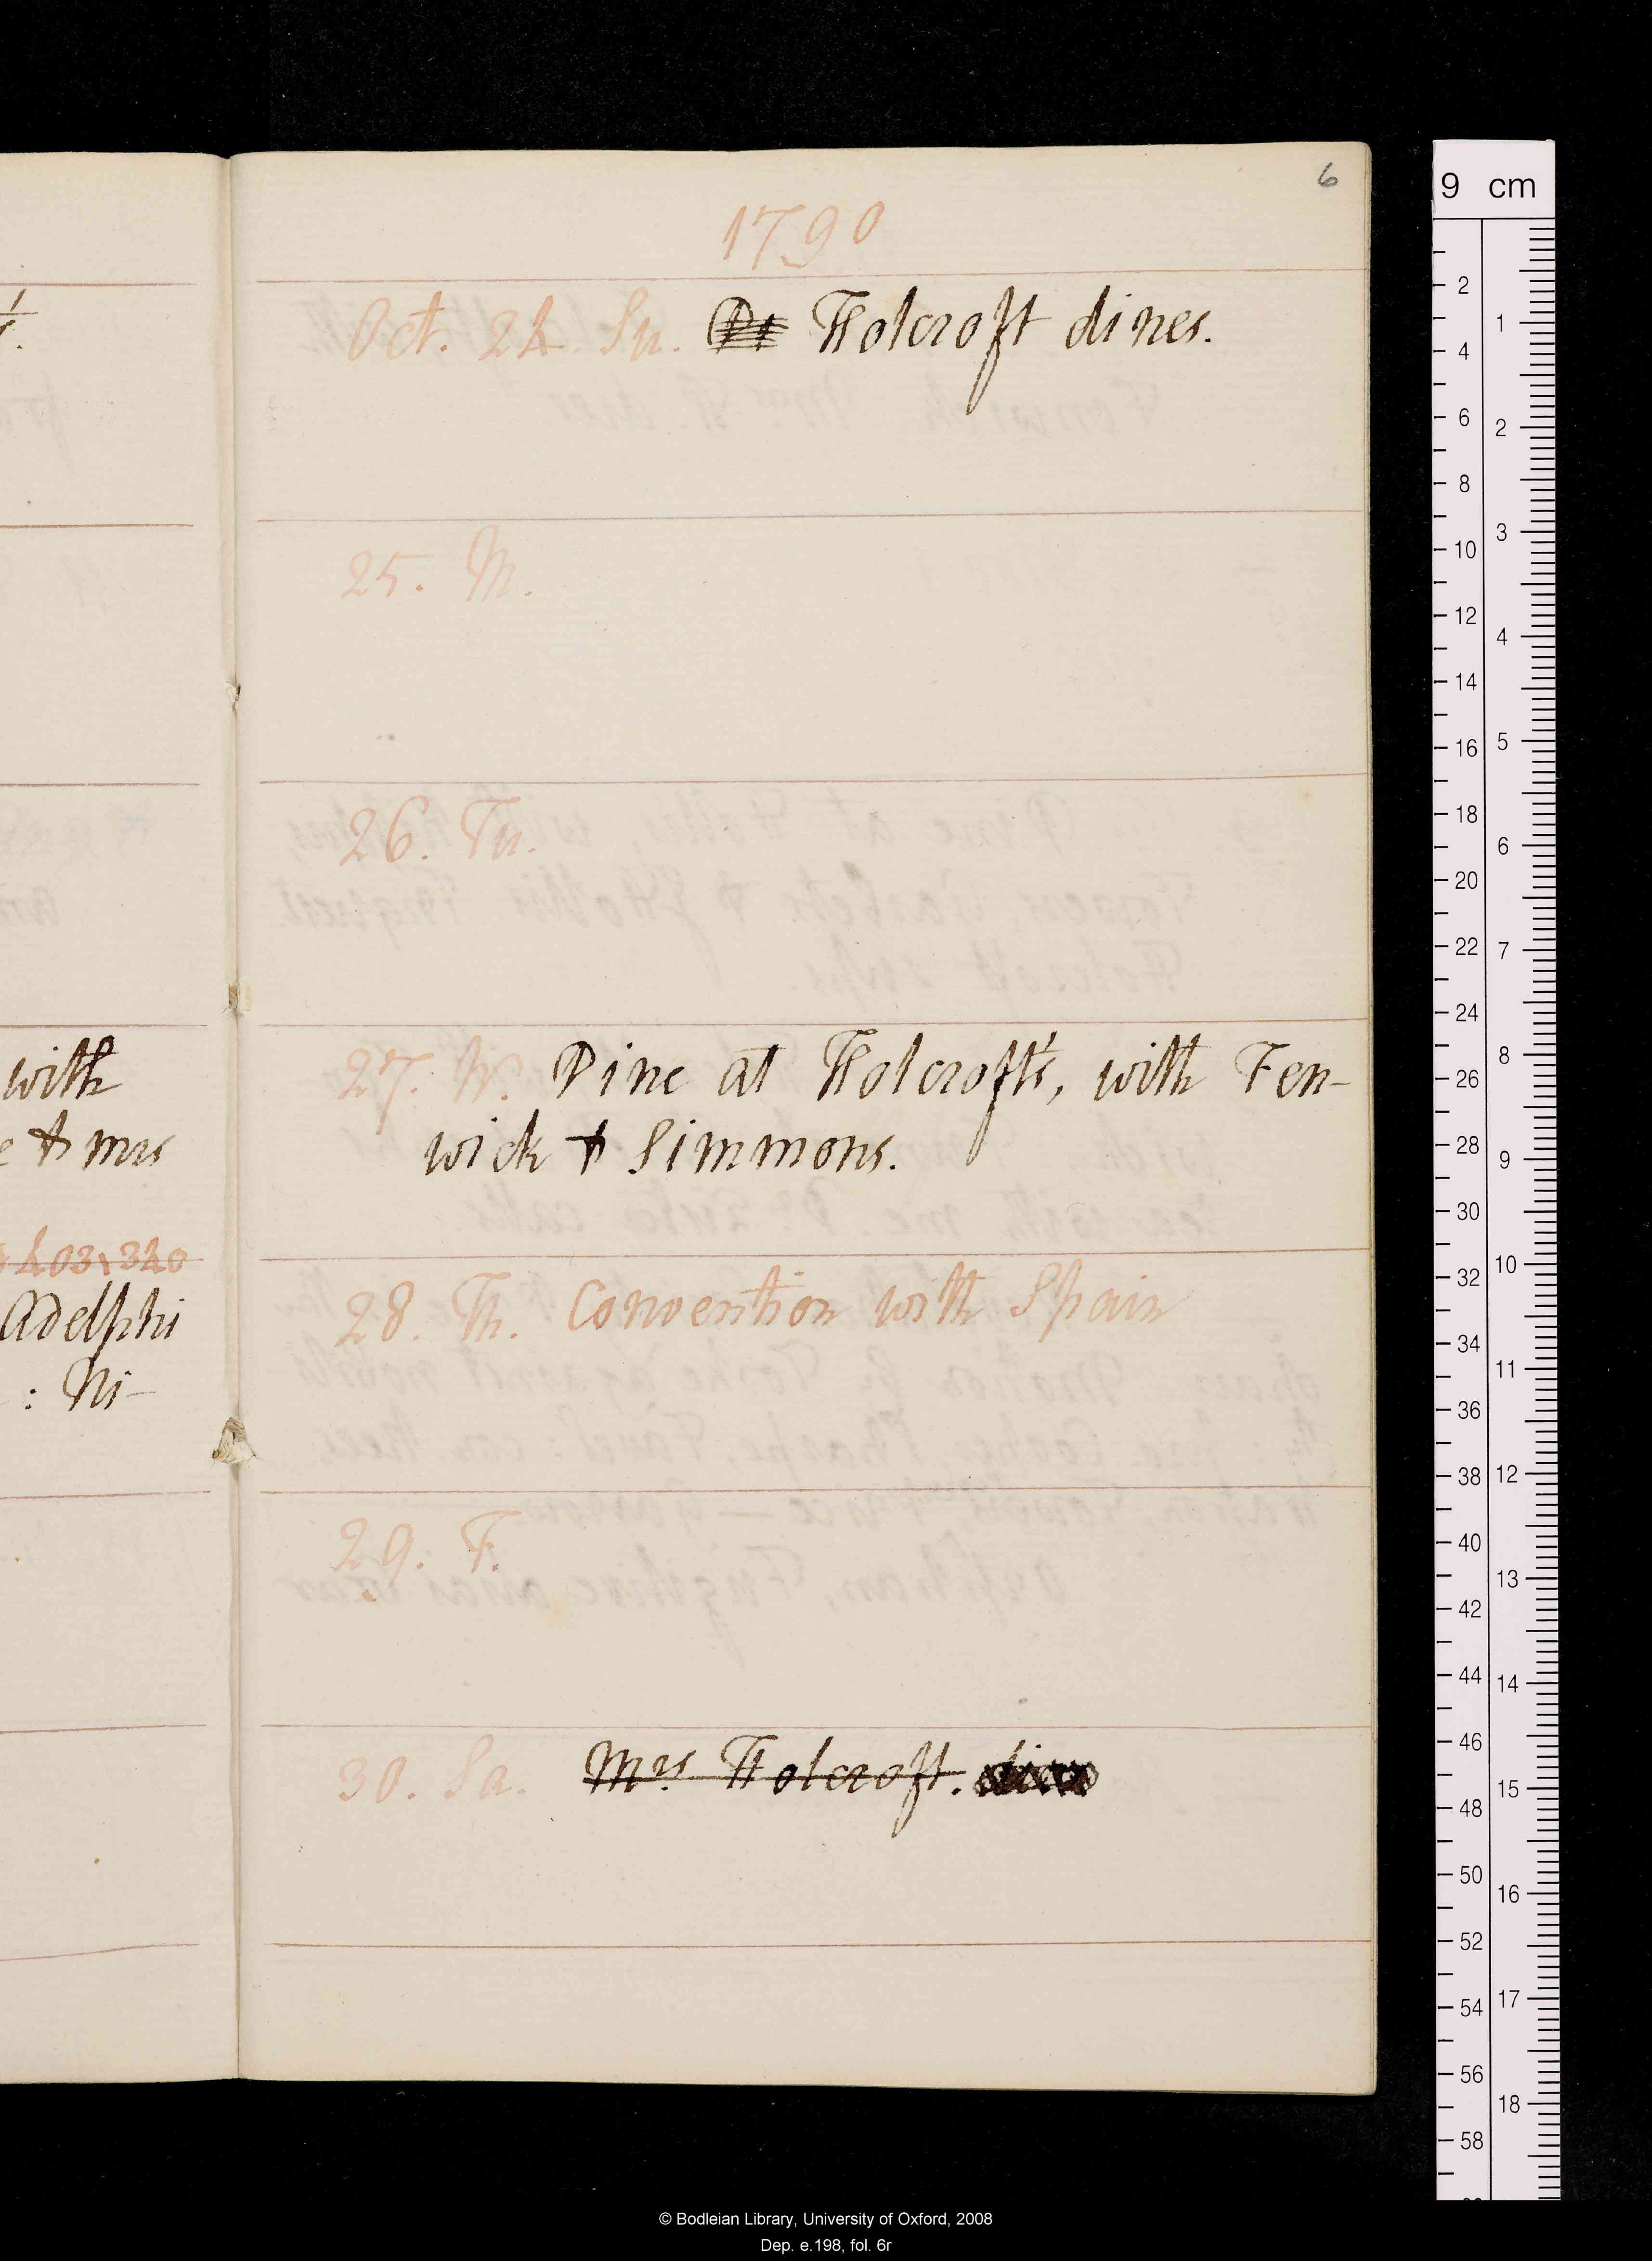 6
1790
Oct. 24. Su. Holcroft dines.
25. M.
26. Tu.
27. W. Dine at Holcroft's, with Fen-
wick & Simmons.
28. Th. Convention with Spain
29. F.
30. Sa. Mrs Holcroft. dines
with
& mrs
403\340
Adelphi
: Ni-
9 cm
2
4
6
8
10
12
14
16
18
20
22
24
26
28
30
32
34
36
38
40
42
44
46
48
50
52
54
56
58
1
2
3
4
5
6
7
8
9
10
11
12
13
14
15
16
17
18
© Bodleian Library, University of Oxford, 2008
Dep. e.198, fol. 6r